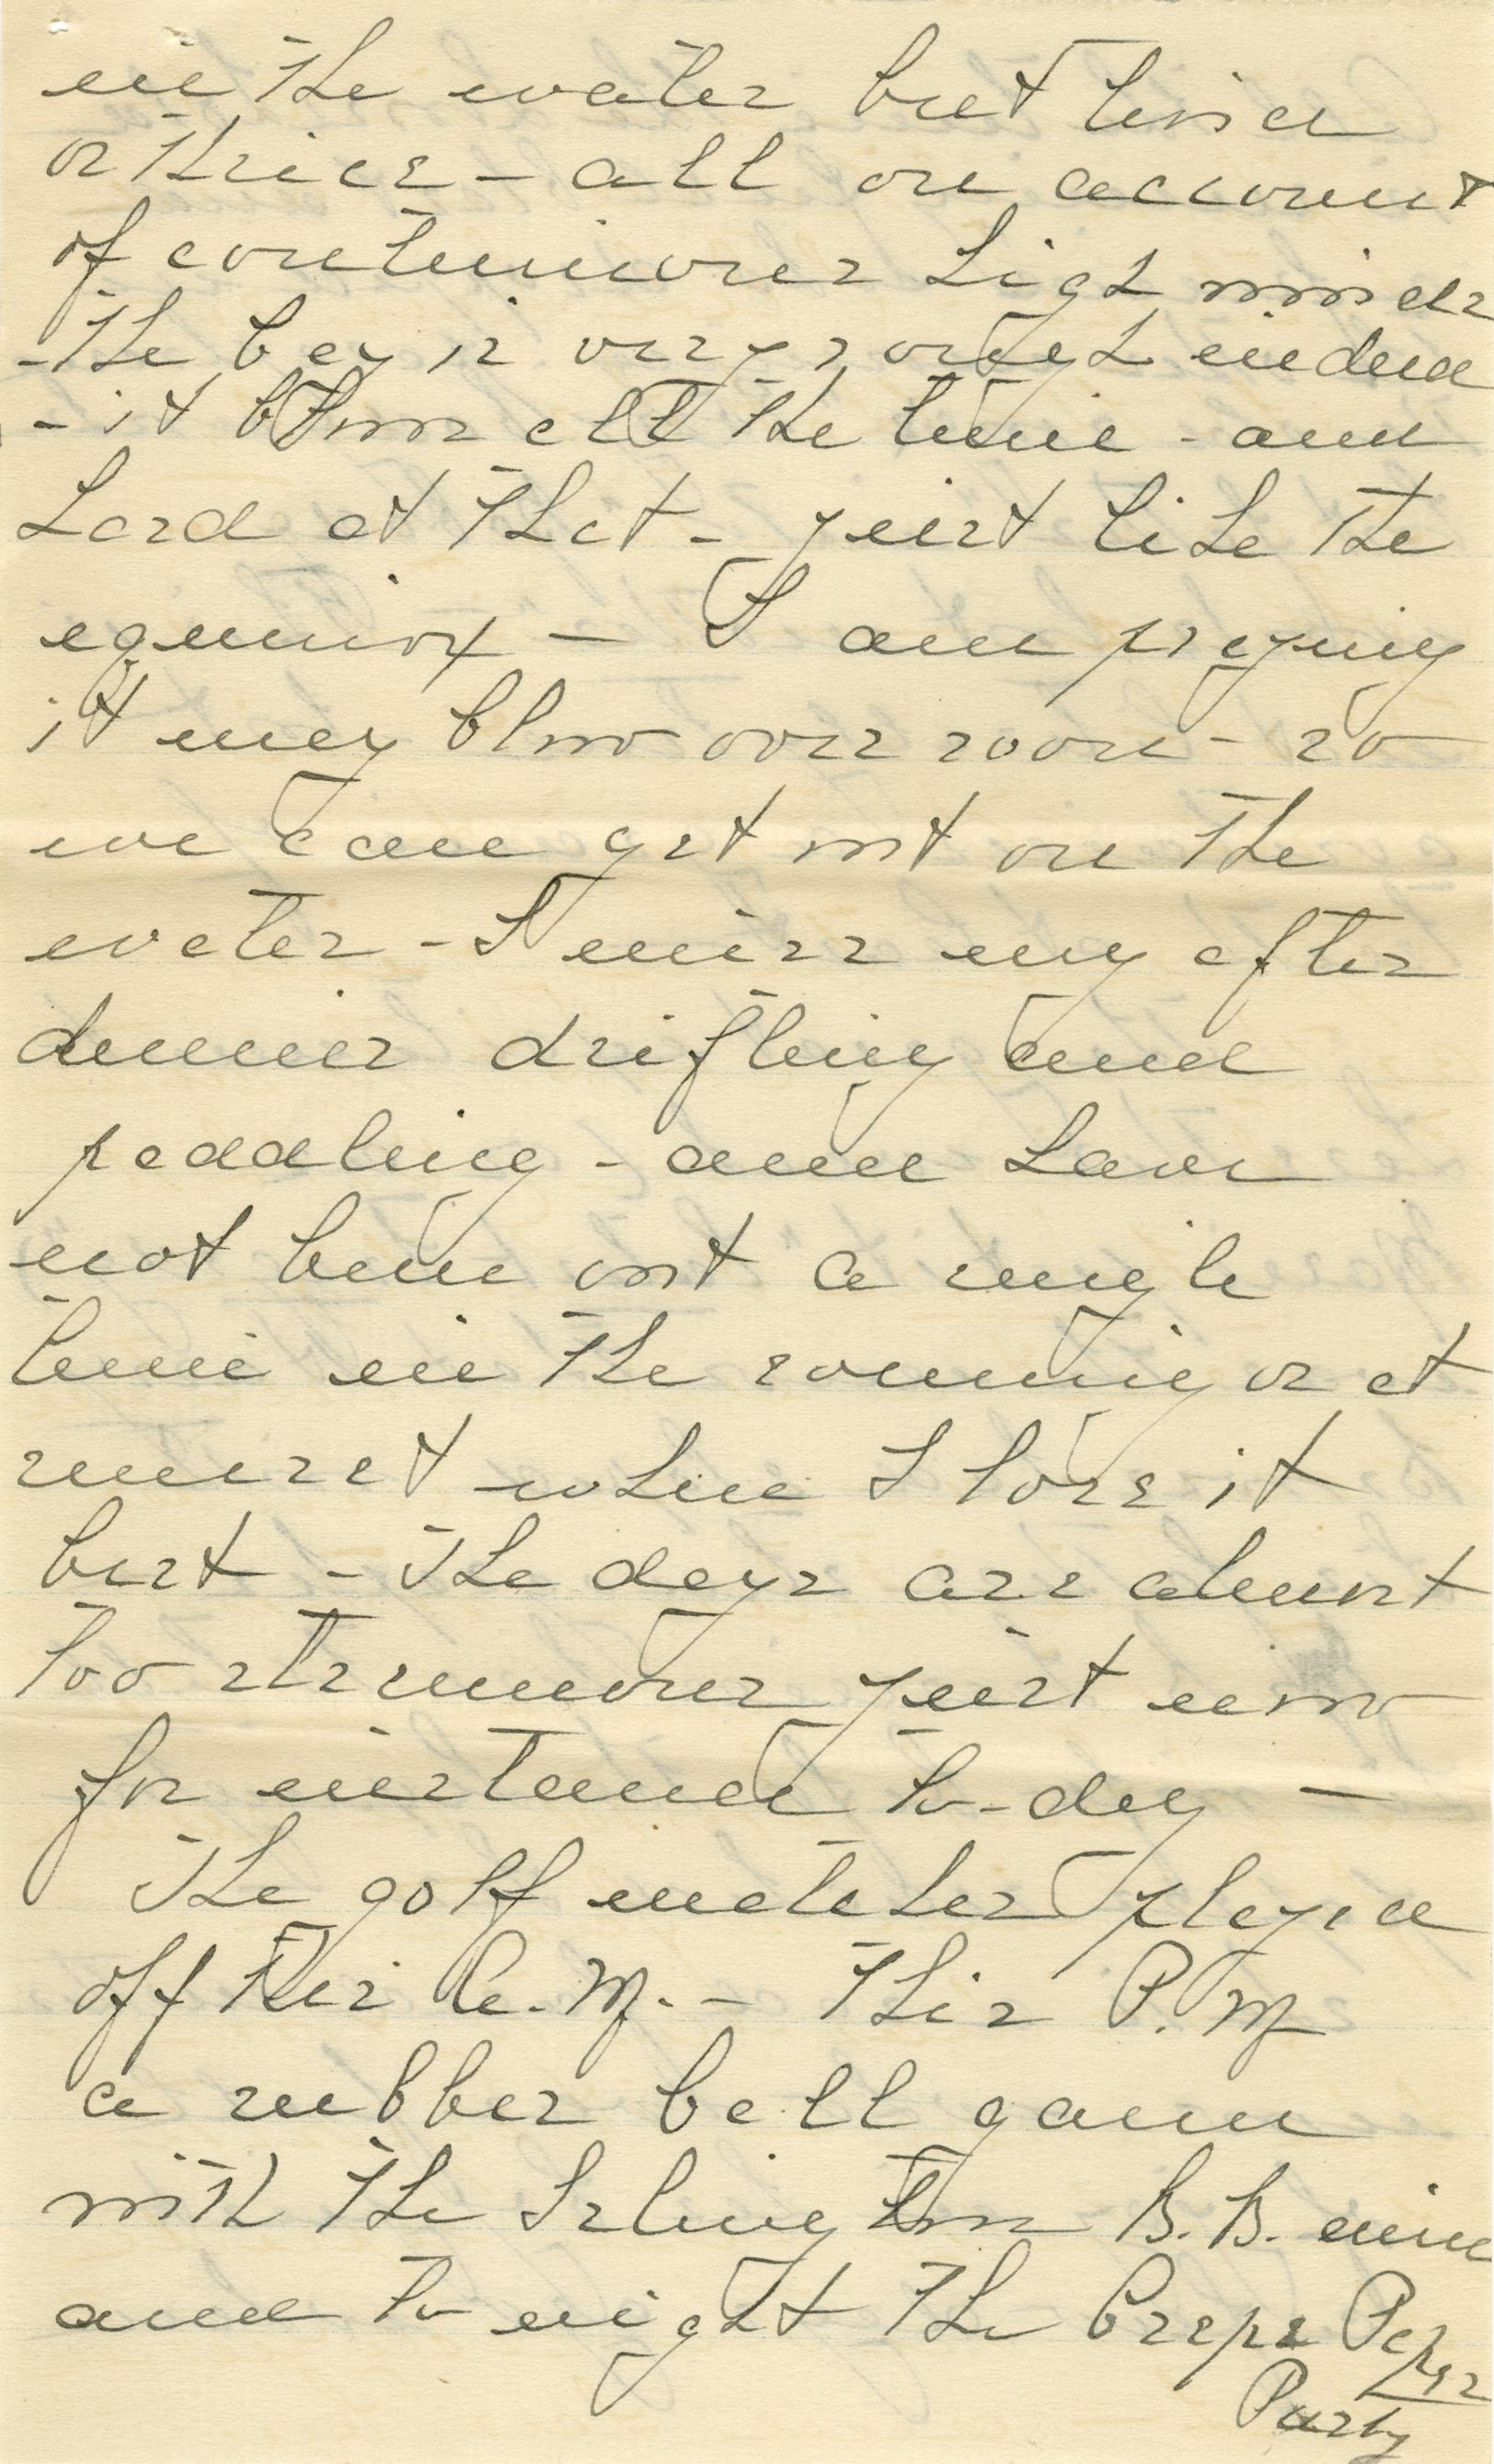 in the water but twice
or thrice - all on account
of continuous high winds
- The bay is very rough indeed
- it blows all the time - and
hard at that - just like the
equinox - I am praying
it may blow over soon - so
we can get out on the
water - I miss my after
dinner drifting and
paddling - and have
not been out a single
time in the evening or at
sunset when I love it
best - The days are almost
too strenuous just now
for instance to-day -
The golf matches played
off this A.M. - This P.M
a rubber ball game
with the Irvington B.B. nine
and to night the Crepe Paper
Party